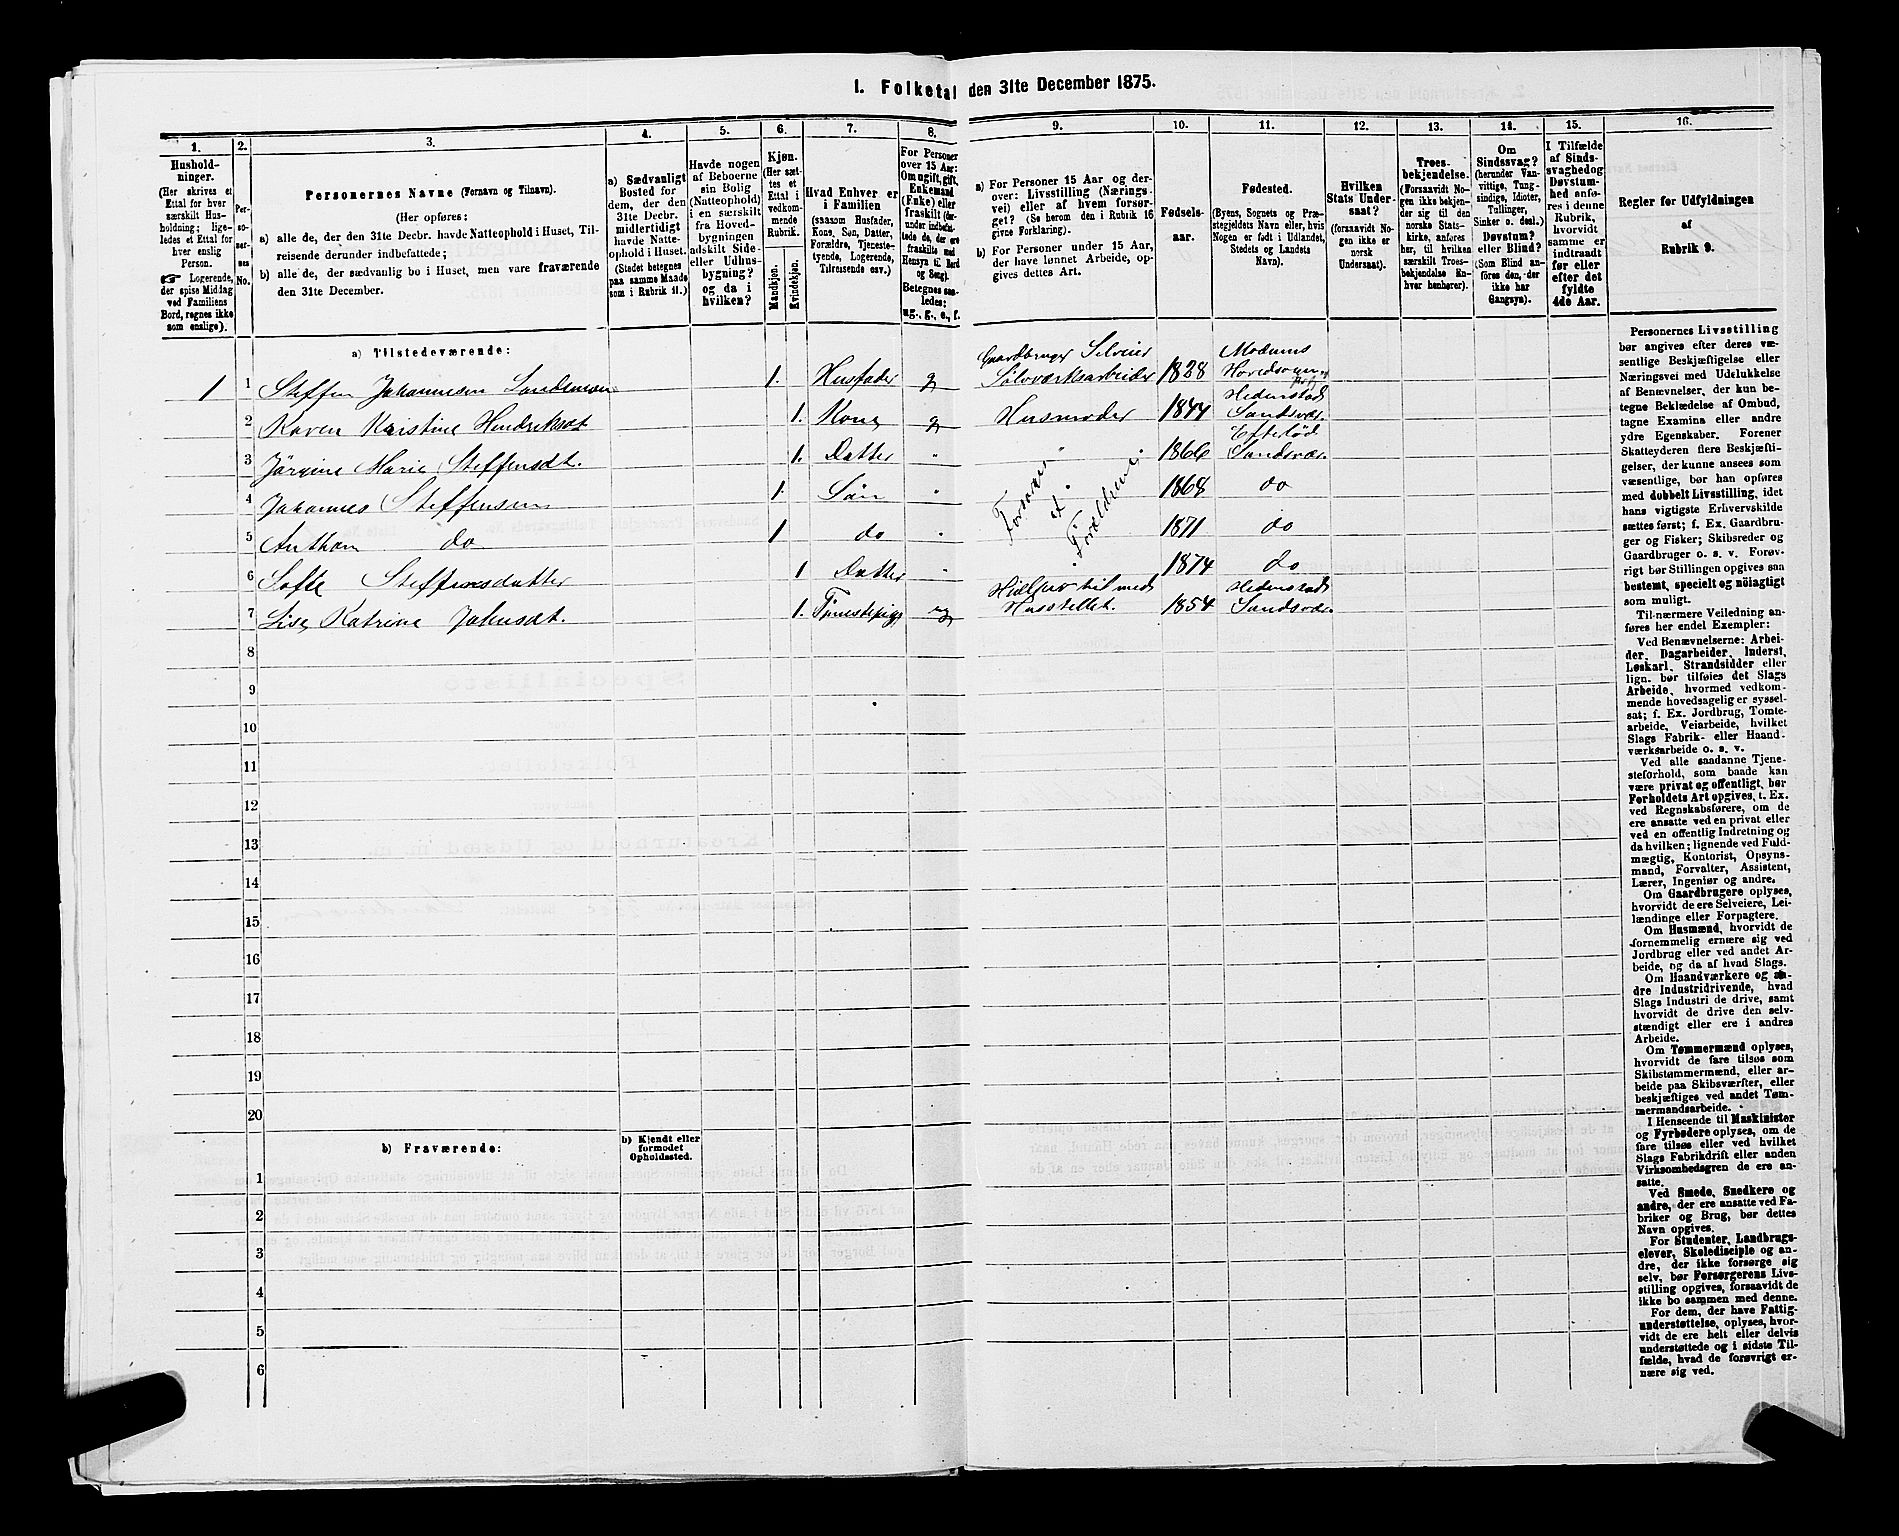 1. Folketal den 31te December 1875.
1.
2.
3.
4.
5.
6.
7.
8.
9.
10.
11.
12.
13.
14.
15.
16.
Hushold-
ninger.
(Her skrives et
Ettal for hver
særskilt Hus-
holdning; lige-
ledes et Ettal for
hver enslig
Person.
☞ Logerende,
der spise Middag
ved Familiens
Bord, regnes ikke
som enslige).
Per-
so-
ner-
nes
No.
Personernes Navne (Fornavn og Tilnavn).
(Her opføres:
a) alle de, der den 31te Decbr. havde Natteophold i Huset, Til-
reisende derunder indbefattede;
b) alle de, der sædvanlig bo i Huset, men vare fraværende
den 31te December.
a) Sædvanligt
Bosted for
dem, der den
31te Decbr.
midlertidigt
havde Natte-
ophold i Huset.
(Stedet betegnes
paa samme Maade
som i Rubrik 11.)
Havde nogen
af Beboerne
sin Bolig
(Natteophold)
i en særskilt
fra Hoved-
bygningen
adskilt Side-
eller Udhus-
bygning?
og da i
hvilken?
Kjøn.
(Her sæt-
tes et
Ettal i
vedkom-
mende
Rubrik.
Mandkjøn.
Kvindekjøn.
Hvad Enhver er
i Familien
(saasom Husfader,
Kone, Søn, Datter,
Forældre, Tjeneste-
tyende, Logerende,
Tilreisende osv.)
For Personer
over 15 Aar:
Om ugift, gift,
Enkemand
(Enke) eller
fraskilt (der-
under indbefat-
tede de, der ere
fraskilte med
Hensyn til Bord
og Seng).
Betegnes saa-
ledes:
ug., g., e., f.
a) For Personer 15 Aar og der-
over: Livsstilling (Nærings-
vei) eller af hvem forsør-
get? (Se herom den i Rubrik 16
givne Forklaring).
b) For Personer under 15 Aar,
der have lønnet Arbeide, op-
gives dettes Art.
Fødsels-
aar.
Fødested.
(Byens, Sognets og Præ-
stegjeldets Navn eller, hvis
Nogen er født i Udlandet,
Stedets og Landets
Navn).
Hvilken
Stats Under-
saat?
(forsaavidt No-
gen ikke er
norsk
Undersaat).
Troes-
bekjendelse.
(Forsaavidt No-
gen ikke bekjen-
der sig til den
norske Stats-
kirke, anføres
her, til hvilken
særskilt Troes-
bekjendelse En-
hver henhører).
Om
Sindssvag?
(herunder Van-
vittige, Tung-
sindige, Idioter,
Tullinger,
Sinker o. desl.)
Døvstum?
eller Blind?
(Som Blind an-
føres den, der
ikke har
Gangsyn).
I Tilfælde
af Sinds-
svaghed og
Døvstum-
hed anfø-
res i denne
Rubrik,
hvorvidt
samme er
indtraadt
før eller
efter det
fyldte
4de Aar.
Regler for Udfyldningen
af
Rubrik 9.
a) Tilstedeværende:
1 1 Steffen Johannesen Sandsmoen 1. Husfader g Gaardbruger Selveier Sølværksarbeider 1828 Modums Hovedsogn
2 Karen Kristine Hendriksdt 1. Kone g Husmoder 1844 Hedenstads Sandsvær
3 Jørgine Marie Steffensdt. 1. Datter " " 1866 Eftelød Sandsvær.
4 Johannes Steffensen 1 Søn " Forsørges af Forældrene 1868 do
5 Anthon do 1 do " 1871 do
6 Sofie Steffensdatter 1 Datter " 1874 do
7 Lise Katrine Johnsdt. 1. Tjenestepige ug Hjælper til med Husstellet. 1854 Hedenstads Sandsvær
8
9
10
11
12
13
14
15
16
17
18
19
20
b) Fraværende:
b) Kjendt eller
formodet
Opholdssted.
1
2
3
4
5
6
Personernes Livsstilling
bør angives efter deres væ-
sentlige Beskjæftigelse eller
Næringsvei med Udelukkelse
af Benævnelser, der kun be-
tegne Beklædelse af Ombud,
tagne Examina eller andre
ydre Egenskaber. Forener
Skatteyderen flere Beskjæfti-
gelser, der kunne ansees som
væsentlige, bør han opføres
med dobbelt Livsstilling, idet
hans vigtigste Erhvervskilde
sættes først; f. Ex. Gaardbru-
ger og Fisker; Skibsreder og
Gaardbruger o. s. v. Forøv-
rigt bør Stillingen opgives saa
bestemt, specielt og nøiagtigt
som muligt.
Til nærmere Veiledning an-
føres her endel Exempler:
Ved Benævnelserne: Arbei-
der, Dagarbeider, Inderst,
Løskarl, Strandsidder eller
lign. bør tilføies det Slags
Arbeide, hvormed vedkom-
mende hovedsagelig er syssel-
sat; f. Ex. Jordbrug, Tomte-
arbeide, Veiarbeide, hvilket
Slags Fabrik- eller Haand-
værksarbeide o. s. v.
Ved alle saadanne Tjene-
steforhold, som baade kan
være privat og offentligt, bør
Forholdets Art opgives, t. Ex.
ved Regnskabsførere, om de
ere ansatte ved en privat eller
ved en offentlig Indretning og
da hvilken; lignende ved Fuld-
mægtig, Kontorist, Opsyns-
mand, Forvalter, Assistent,
Lærer, Ingeniør og andre.
Om Gaardbrugere oplyses,
hvorvidt de ere Selveiere, Lei-
lændinge eller Forpagtere.
Om Husmænd, hvorvidt de
fornemmelig ernære sig ved
Jordbrug eller ved andet Ar-
beide, og da af hvad Slags.
Om Haandværkere og an-
dre Industridrivende, hvad
Slags Industri de drive, samt
hvorvidt de drive den selv-
stændigt eller ere i andres
Arbeide.
Om Tømmermænd oplyses,
hvorvidt de fare tilsøs som
Skibstømmermænd, eller ar-
beide paa Skibsværfter, eller
beskjæftiges ved andet Tøm-
mermandsarbeide.
I Henseende til Maskinister
og Fyrbødere oplyses, om de
fare tilsøs eller ved hvilket
Slags Fabrikdrift eller anden
Virksomhedsgren de ere an-
satte.
Ved Smede, Snedkere og
andre, der ere ansatte ved Fa-
briker og Brug, bør dettes
Navn opgives.
For Studenter, Landbrugs-
elever, Skoledisciple og an-
dre, der ikke forsørge sig
selv, bør Forsørgerens Livs-
stilling opgives, forsaavidt de
ikke bo sammen med denne.
For dem, der have Fattig-
understøttelse, oplyses, hvor-
vidt de ere helt eller delvis
understøttede og i sidste Til-
fælde, hvad de forøvrigt er-
nære sig ved.